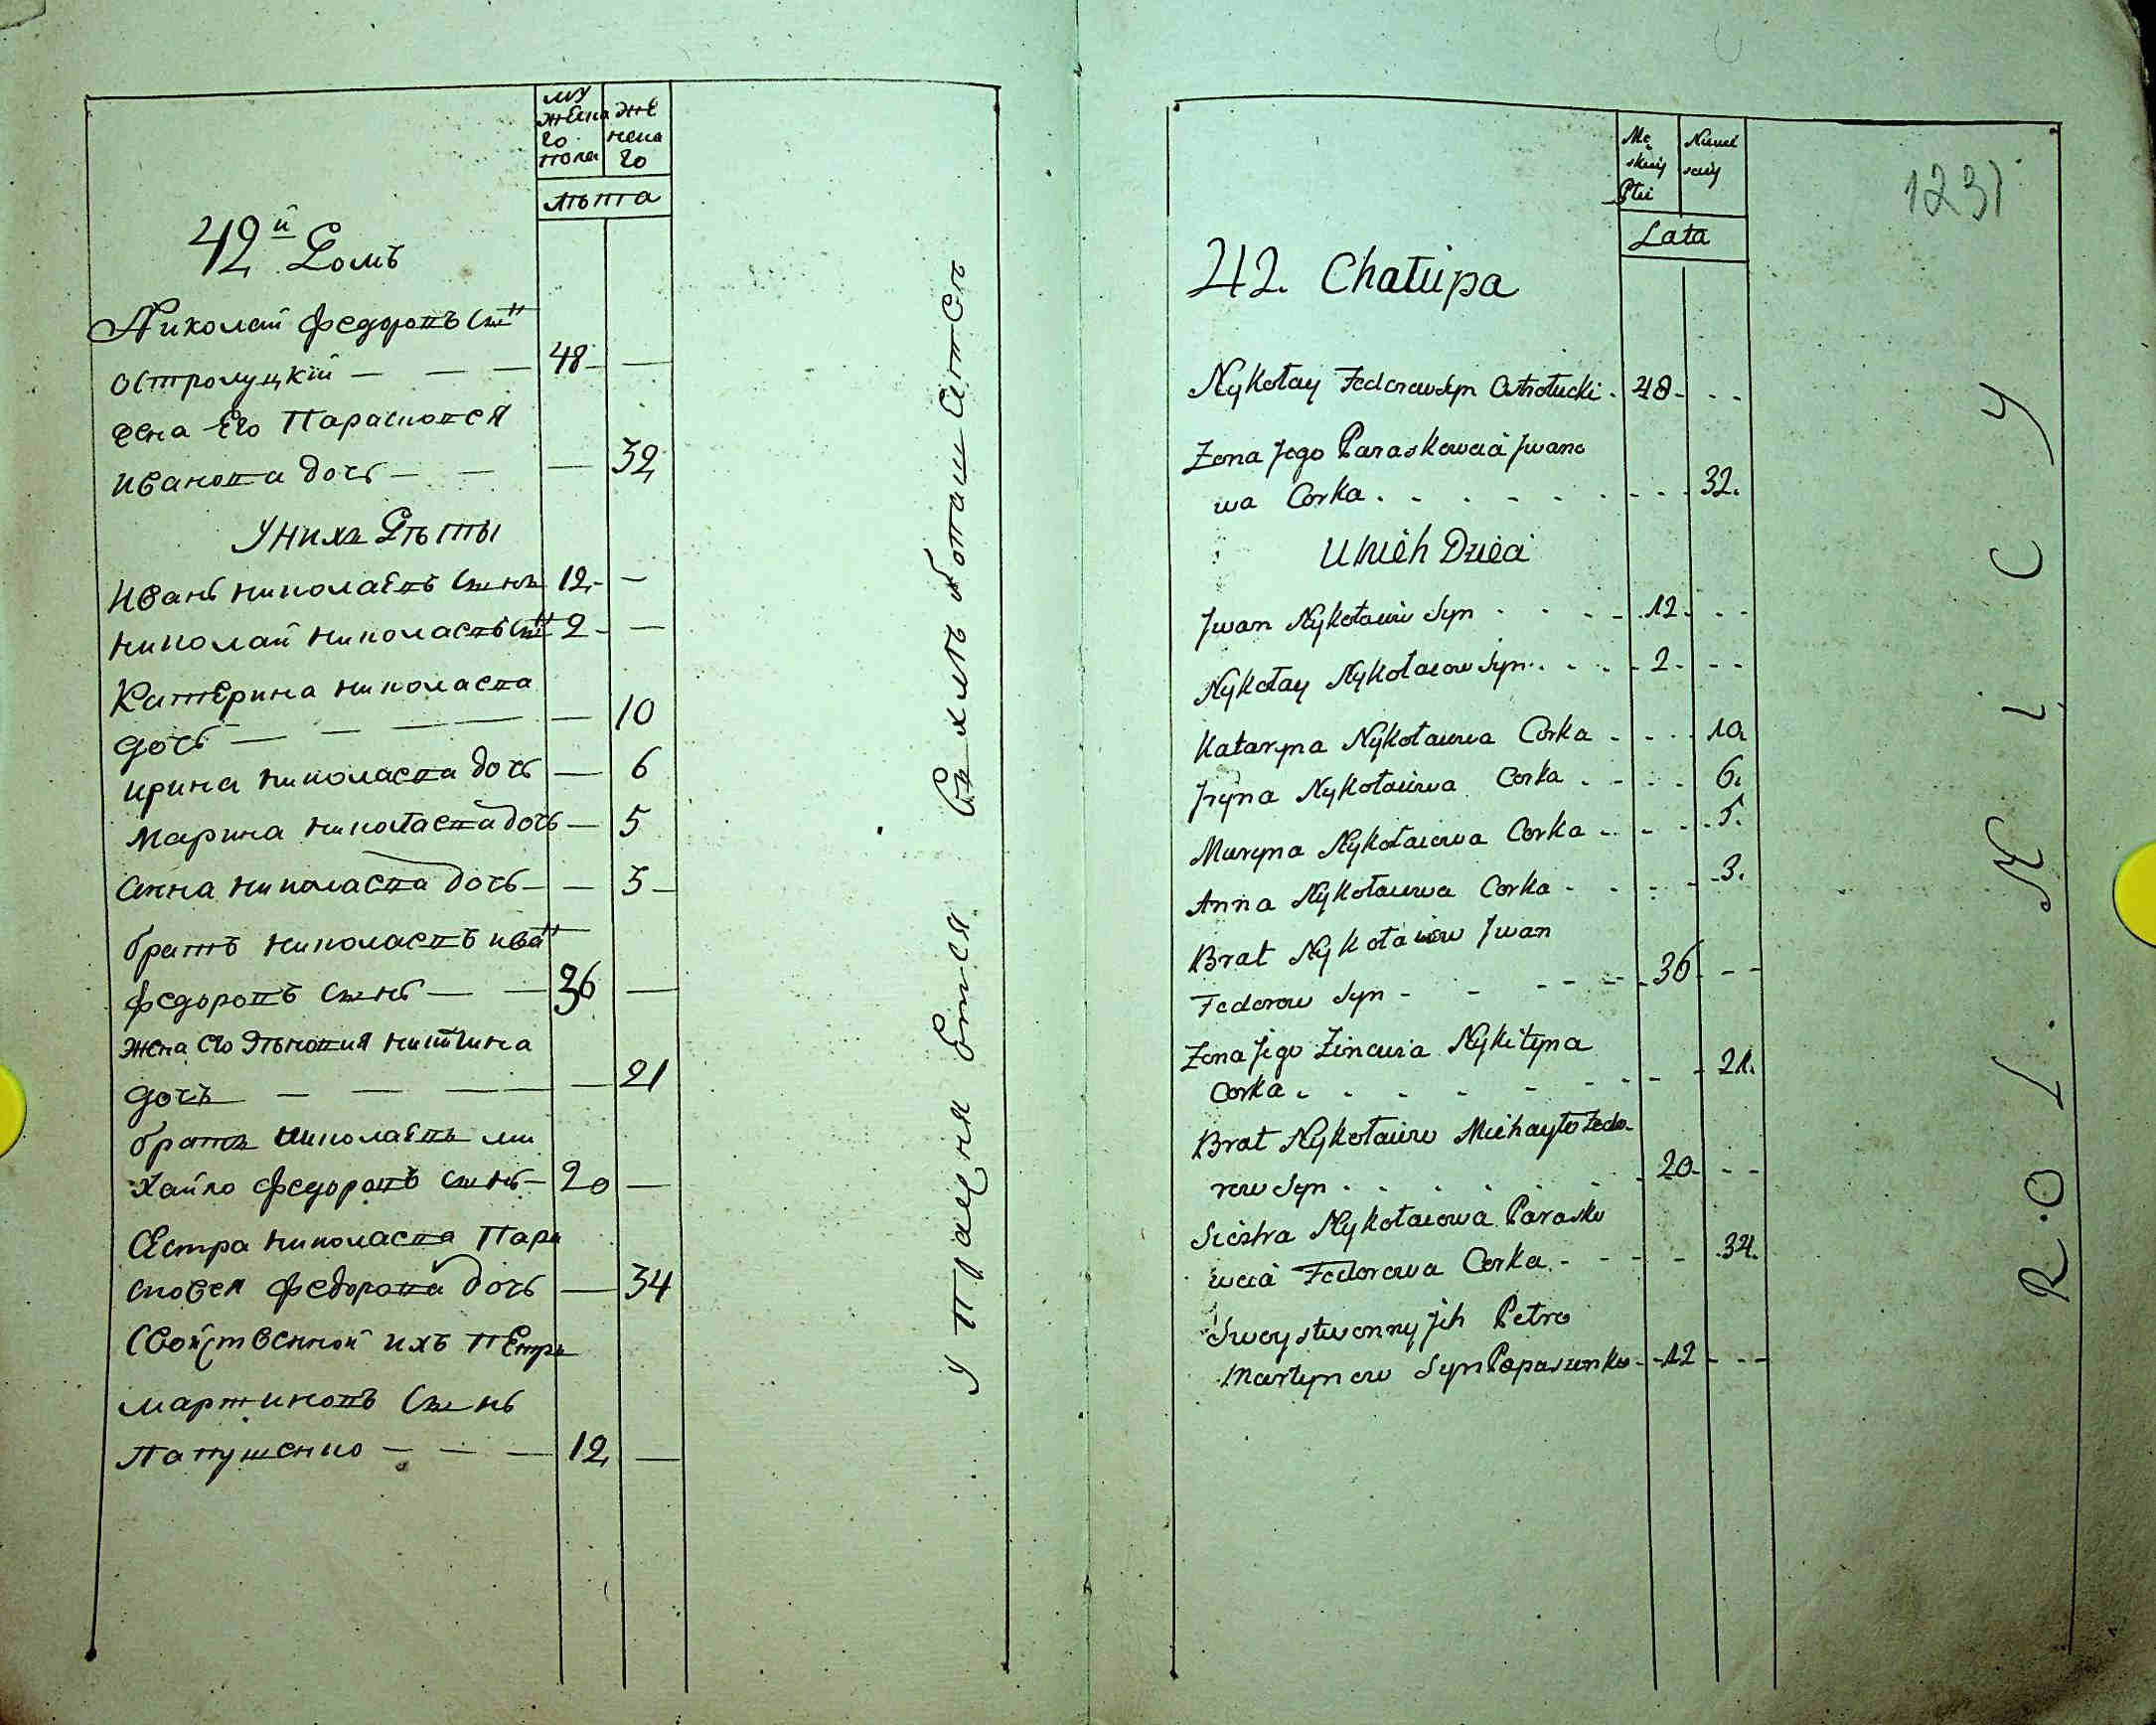 му
жеска
го
пола
же
нска
го
лѣта
42й Домъ
Николай Федоровъ сынъ
Остролуцкій — — — 48 —
жена Его Парасковея
Иванова дочь — — — 32
У нихъ Дѣты
Иванъ Николаевъ сынъ 12 —
Николай Николаевъ сынъ 2 —
Катерина Николаева
дочь — — — — 10
Ирина Николаева дочь — 6
Марина Николаева дочь — 5
Анна Николаева дочь — — 3 —
братъ Николаевъ Иванъ
Федоровъ сынъ — — 36 —
жена его Зѣновия Никитина
дочъ — — — — 21
братъ Николаевъ Ми
хайло Федоровъ сынъ — 20 —
Сестра Николаева Пара
сковея Федорова дочь — 34
Свойственной ихъ Петръ
Мартиновъ Сынъ
Папушенко — — — 12 —
У
42. Chałupa
Mę
skiey
Płci
Niewie
sciey
Lata
1231
Nykołay Fedorow Syn Ostrołucki . 48 - - -
Zona Jego Paraskewia Jwano
wa Corka . . . . . . . 32.
U Nich Dzieci
Jwan Nykołaiw Syn . . . . 12 . - -
Nykołay Nykołaiow Syn . . . . 2 - - -
Kataryna Nykołaiewa Corka . . . 10.
Jryna Nykołaiewa Corka . . . . 6.
Maryna Nykołaiowa Corka . . . . 5.
Anna Nykołaiewa Corka . . . . 3.
Brat Nykołaiow Jwan
Fedorow Syn - - - - - 36 - -
Zona Jego Zinowia Nykityna
Corka . . . . . . . 21.
Brat Nykołaiow Michayło Fedo-
row Syn . . . . . . 20 - - -
Siestra Nykołaiowa Parasko
weia Fedorowa Corka . - - - . 34.
Swoystwenny Jch Petro
Martynow Syn Papaszenko - 12 - - -
R O L N I C Y